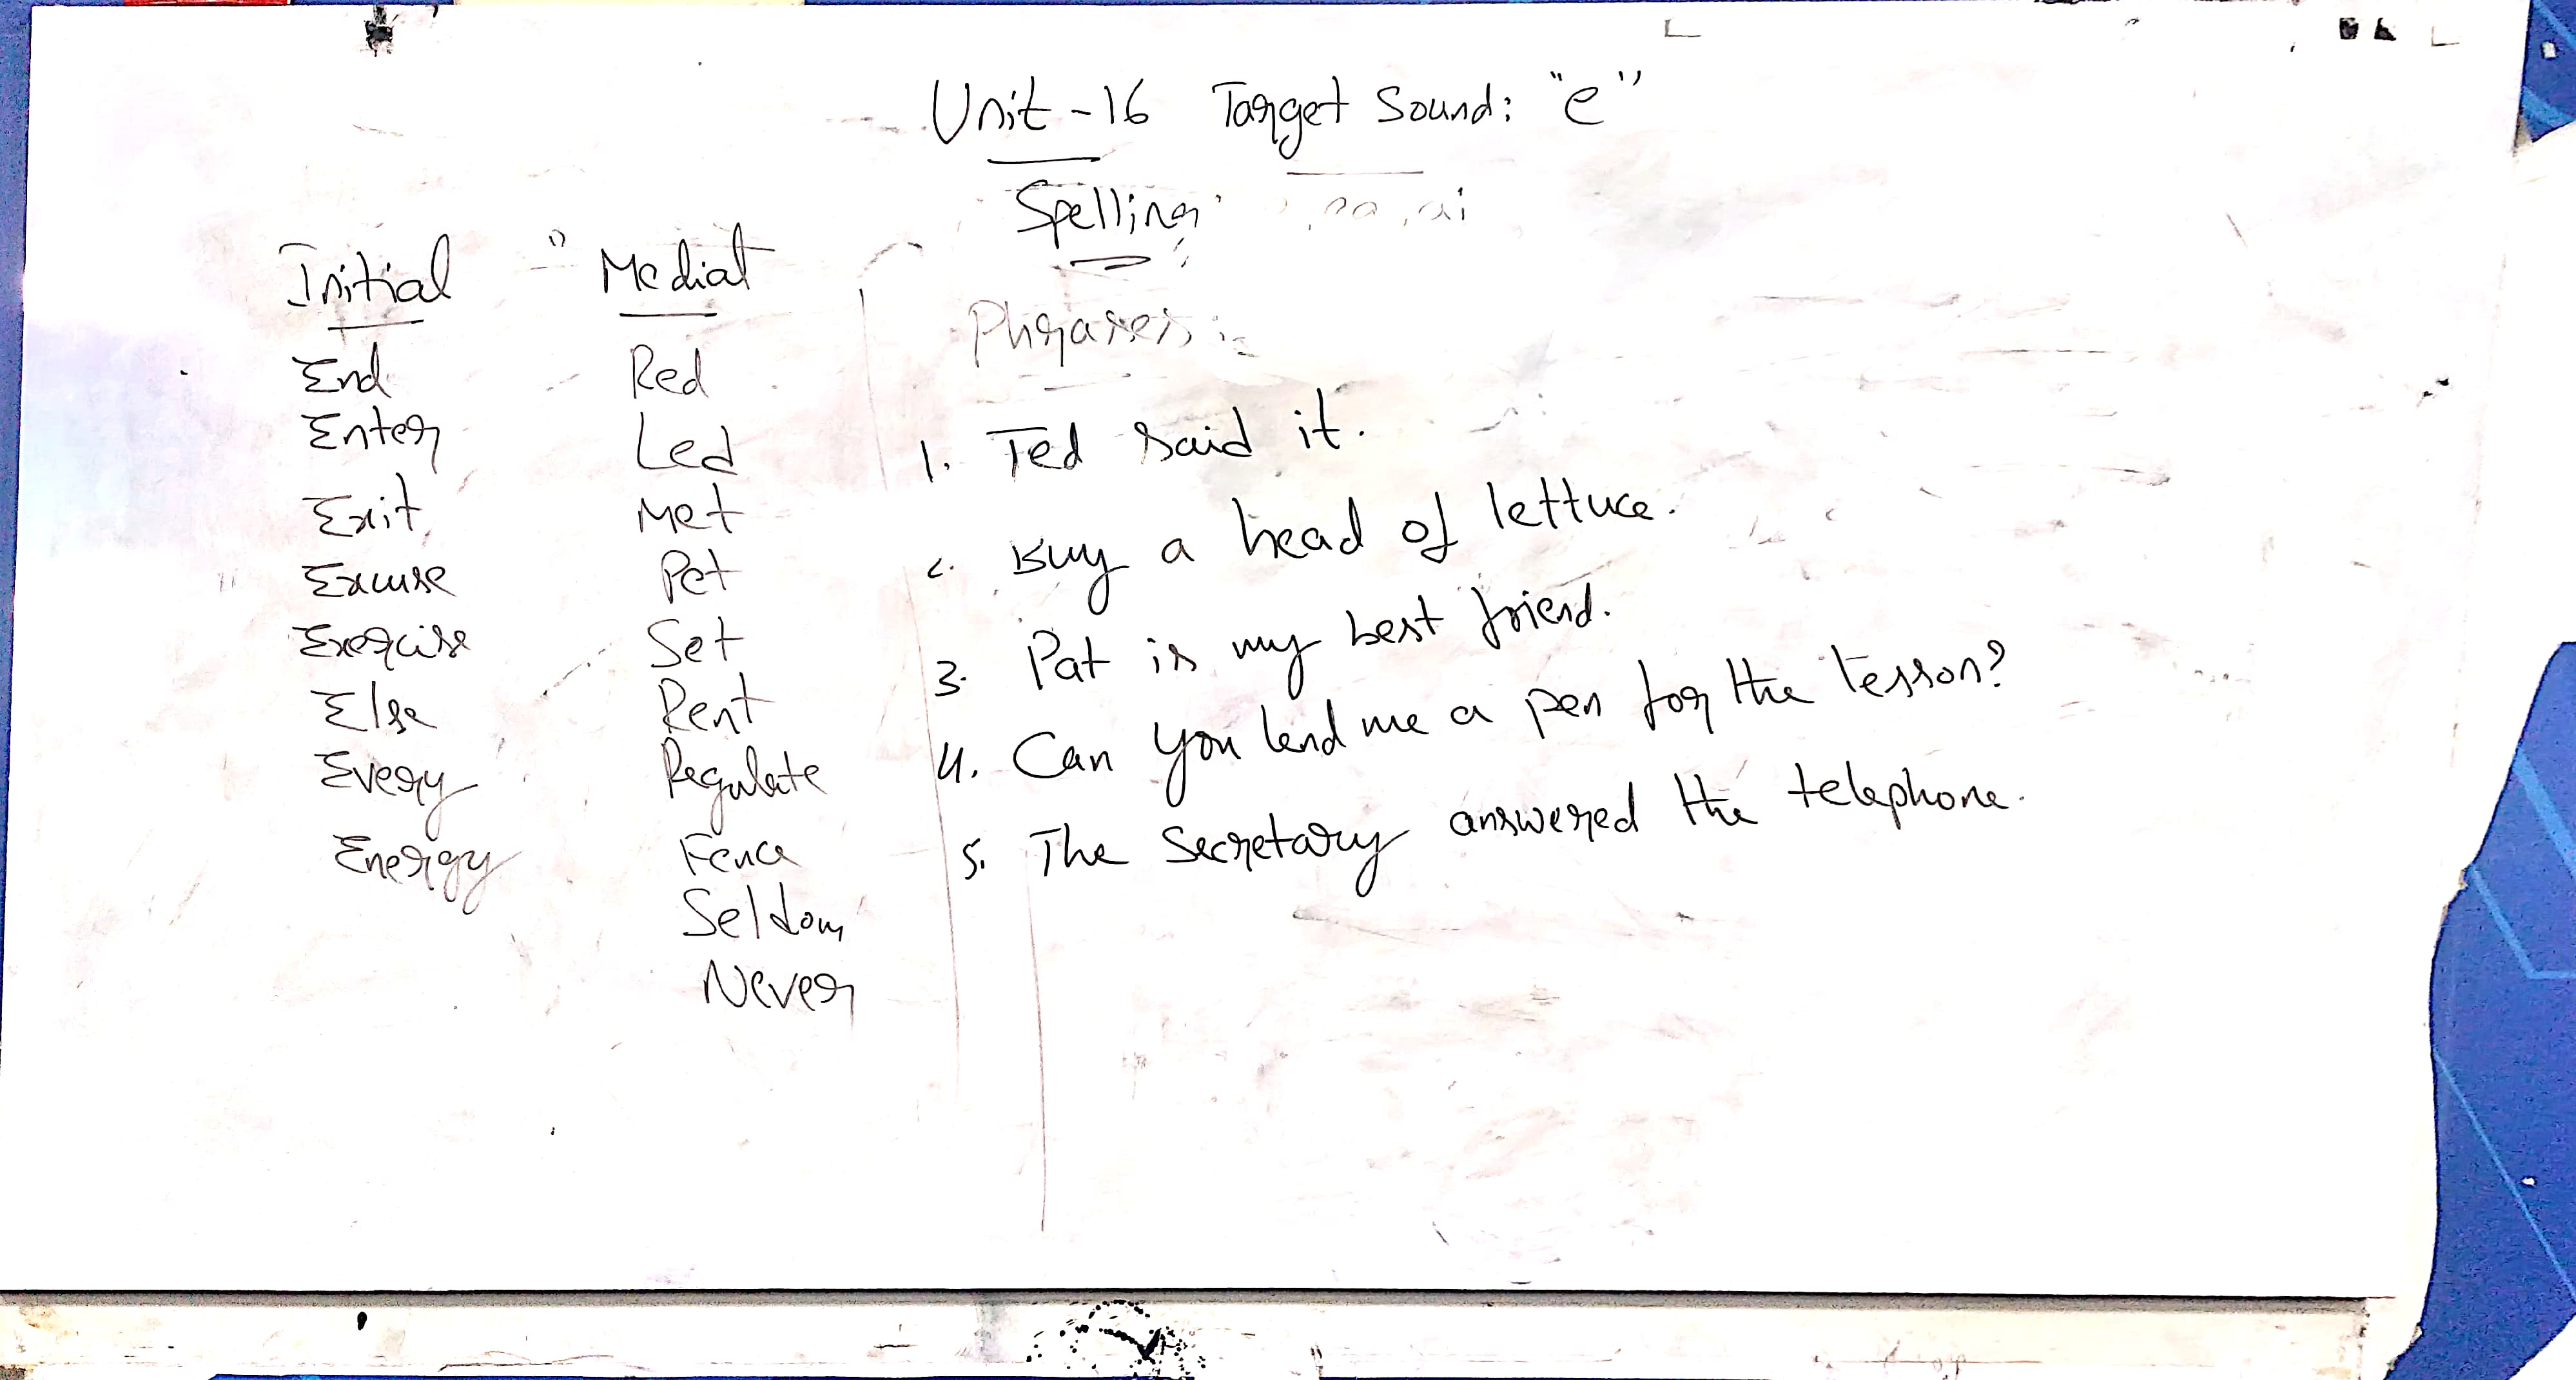 Unit - 16 Target Sound: "e"
Spelling
Initial
End
Enter
Exit
Excuse
Exercise
Else
Every
Energy
Medial
Red
Led
Met
Pet
Set
Rent
Regulate
Fence
Seldom
Never
Phrases:
1. Ted said it.
2. Buy a head of lettuce.
3. Pat is my best friend.
4. Can you lend me a pen for the lesson?
5. The Secretary answered the telephone.